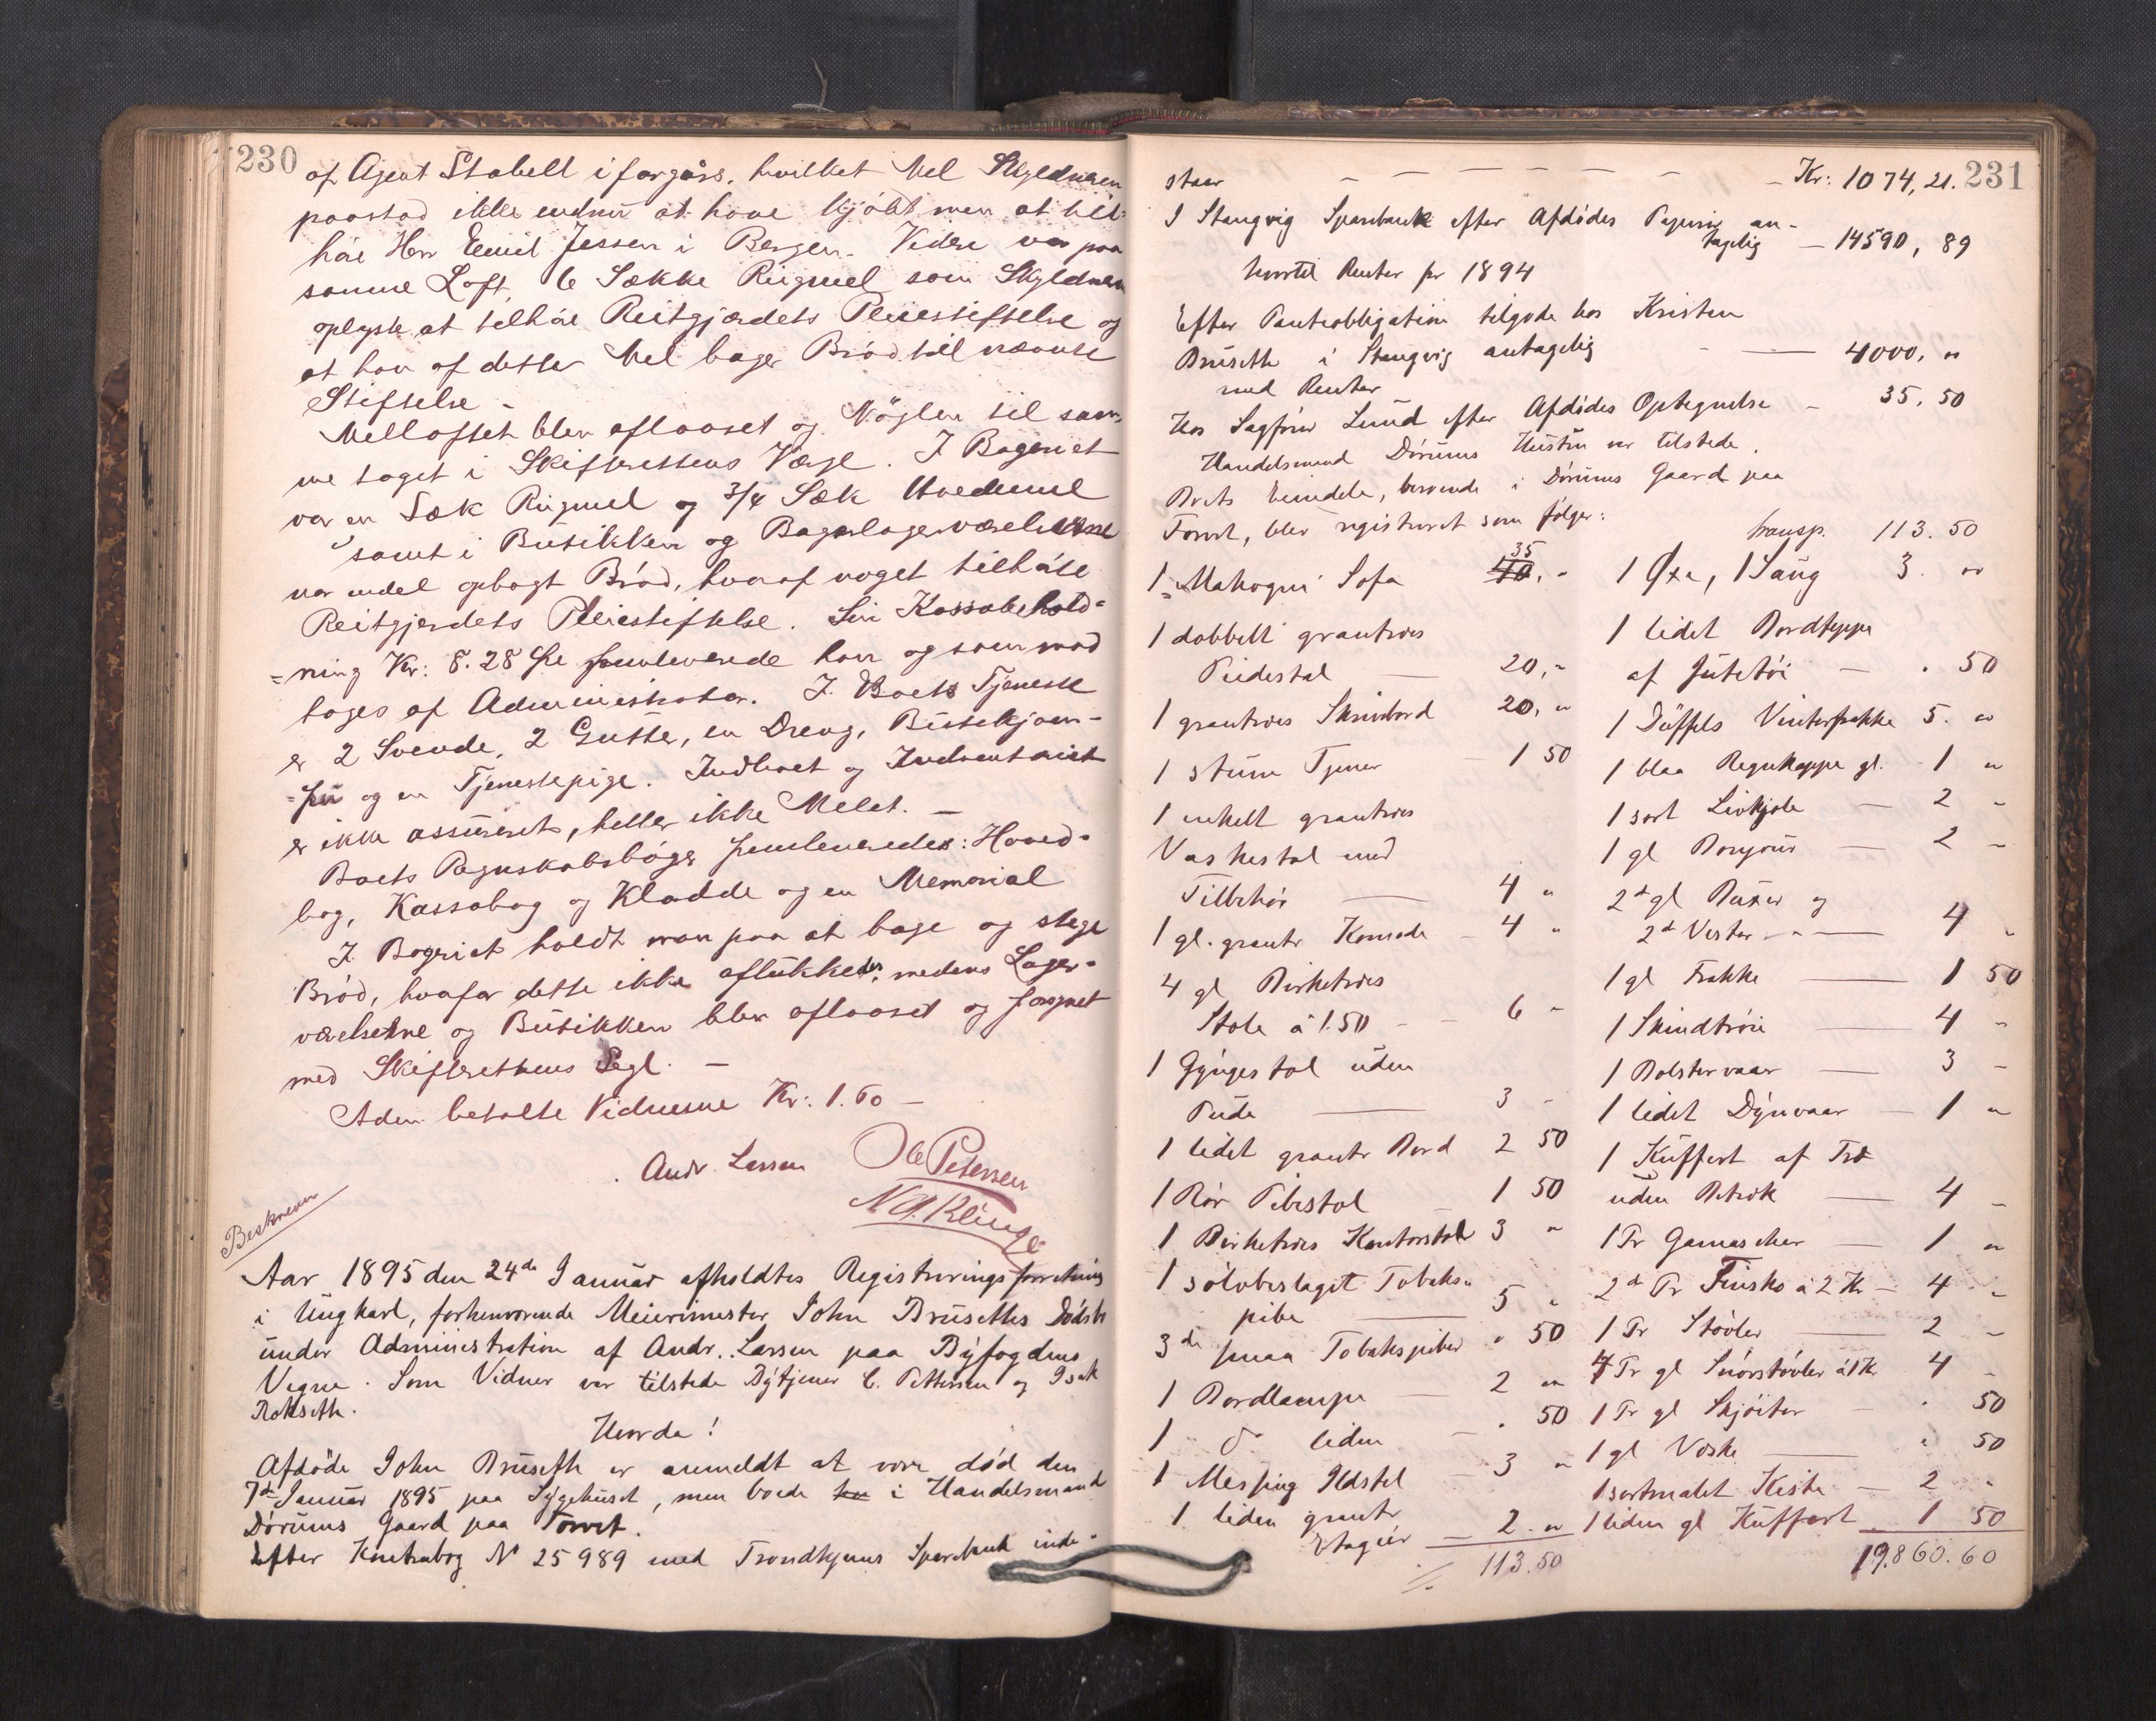 230
af Agent Stabell iforgårs, hvilket Mel Skyldneren
paastod ikke endnu at have kjøbt men at til-
høre Herr Emil Jessen i Bergen. Videre var paa
samme Loft 6 Sække Rugmel som Skyldneren
oplyste at tilhøre Reitgjærdets Pleiestiftelse og
at han af dette Mel bager Brød til nævnte
Stiftelse -
Melloftet blev aflaaset og Nøglen til sam-
me taget i Skifterettens Værge. I Bageriet
var en Sæk Rugmel og 3/4 Sæk Hvedemel
samt i Butikken og Bagerlagerværelserne
var endel opbagt Brød, hvoraf noget tilhørte
Reitgjerdets Pleiestiftelse. Sin Kassabehold-
=ning Kr: 8.28 Øre fremleverede han og som mod
toges af Administrator. I Boets Tjeneste
er 2 Svende, 2 Gutter, en Dreng, Butikjom-
=fru og en Tjenestepige. Indboet og Inventariet
er ikke assureret, heller ikke Melet. -
Boets Regnskabsbøger fremleveredes: Hoved-
bog, Kassabog og Kladde og en Memorial
I Bageriet holdt man paa at bage og stege
Brød, hvofor dette ikke aflukkedes, medens Lager-
værelserne og Butikken blev aflaaset og forsynet
med Skifterettens Segl. -
Adm. betalte Vidnerne Kr: 1.60 -
Andr. Larsen Ole Petersen
N A. Klinge
Beskreven
Aar 1895 den 24de Januar afholdtes Registreringsforretning
i Ungkarl, forhenværende Meierimester John Brusetts Dødsbo
under Administration af Andr. Larsen paa Byfogdens
Vegne. Som Vidner var tilstede Bytjener C. Pettersen og Isak
Rokseth.
Hvorda!
Afdøde John Bruseth er anmeldt at være død den
7de Januar 1895 paa Sygehuset, men boede i Handelsmand
Dørums Gaard paa Torvet.
Efter Kontrabog No 25989 med Trondhjems Sparebank inde-
231
staar - - - - - - - Kr: 1074,21.
I Stangvig Sparebank efter Afdødes Papirer an-
tagelig - 14590,89
hvortil Renter pr 1894
Efter Panteobligation tilgode hos Kristen
Bruseth i Stangvig antagelig - 4000, "
med Renter
Hos Sagfører Lund efter Afdødes Optegnelse - 35.50
Handelsmand Dørums Hustru var tilstede.
Boets Eiendele, beroende i Dørums Gaard paa
Torvet, blev registreret som følger:
1 Mahogni Sofa 40 35, "
1 dobbelt grantræes
Pidestal 20, "
1 grantræes Skrivbord 20, "
1 stum Tjener 1 50
1 enkelt grantræes
Vaskestol med
Tilbehør 4 "
1 gl. grantr Komode 4 "
4 gl Birketræes
Stole á 1.50 6 "
1 Gyngestol uden
Pude 3 "
1 lidet grantr Bord 2 50
1 Rør Pibestol 1 50
1 Birketræes Kontorstol 3 "
1 sølvbeslaget Tobaks-
pibe 5 "
3de smaa Tobakspiber " 50
1 Bordlampe 2 "
1 do liden " 50
1 Messing Ildstel 3 "
1 liden grantr
Etagér 2 "
113.50
transp. 113.50
1 Øxe, 1 Saug 3. "
1 lidet Bordteppe
af Jutetøi " 50
1 Düffels Vinterfrakke 5. "
1 blaa Regnkappe gl. 1 "
1 sort Livkjole 2 "
1 gl Bonjour 2 "
2de gl Buxer og
2de Vester 4 "
1 gl Frakke 1 50
1 Skindtrøie 4 "
1 Bolstervaar 3 "
1 lidet Dynvaar 1 "
1 Kuffert af Træ
uden Betræk 4 "
1 Pr Gamascher 1 "
2de Pr Finsko á 2 Kr 4 "
1 Pr Støvler 2 "
4 Pr gl Snørstøvler á 1 Kr 4 "
1 Pr gl Skjøiter " 50
1 gl Væske " 50
1 sortmalet Kiste 2 "
1 liden gl Kuffert 1 50
19.860.60